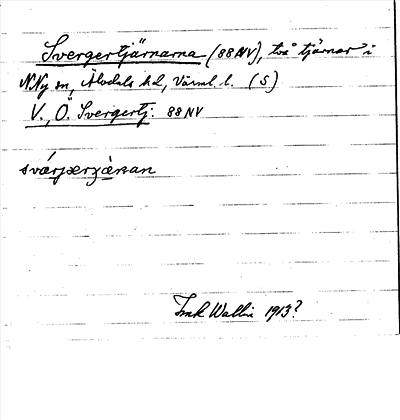 Svergertjärnarna (88 NV), två tjärnar i
N. Ny sn, Älvdals hd, Värml. l. (S)
V., Ö. Svergertj. 88 NV
svǽrjærjæ̀nan
Wallin 1913?